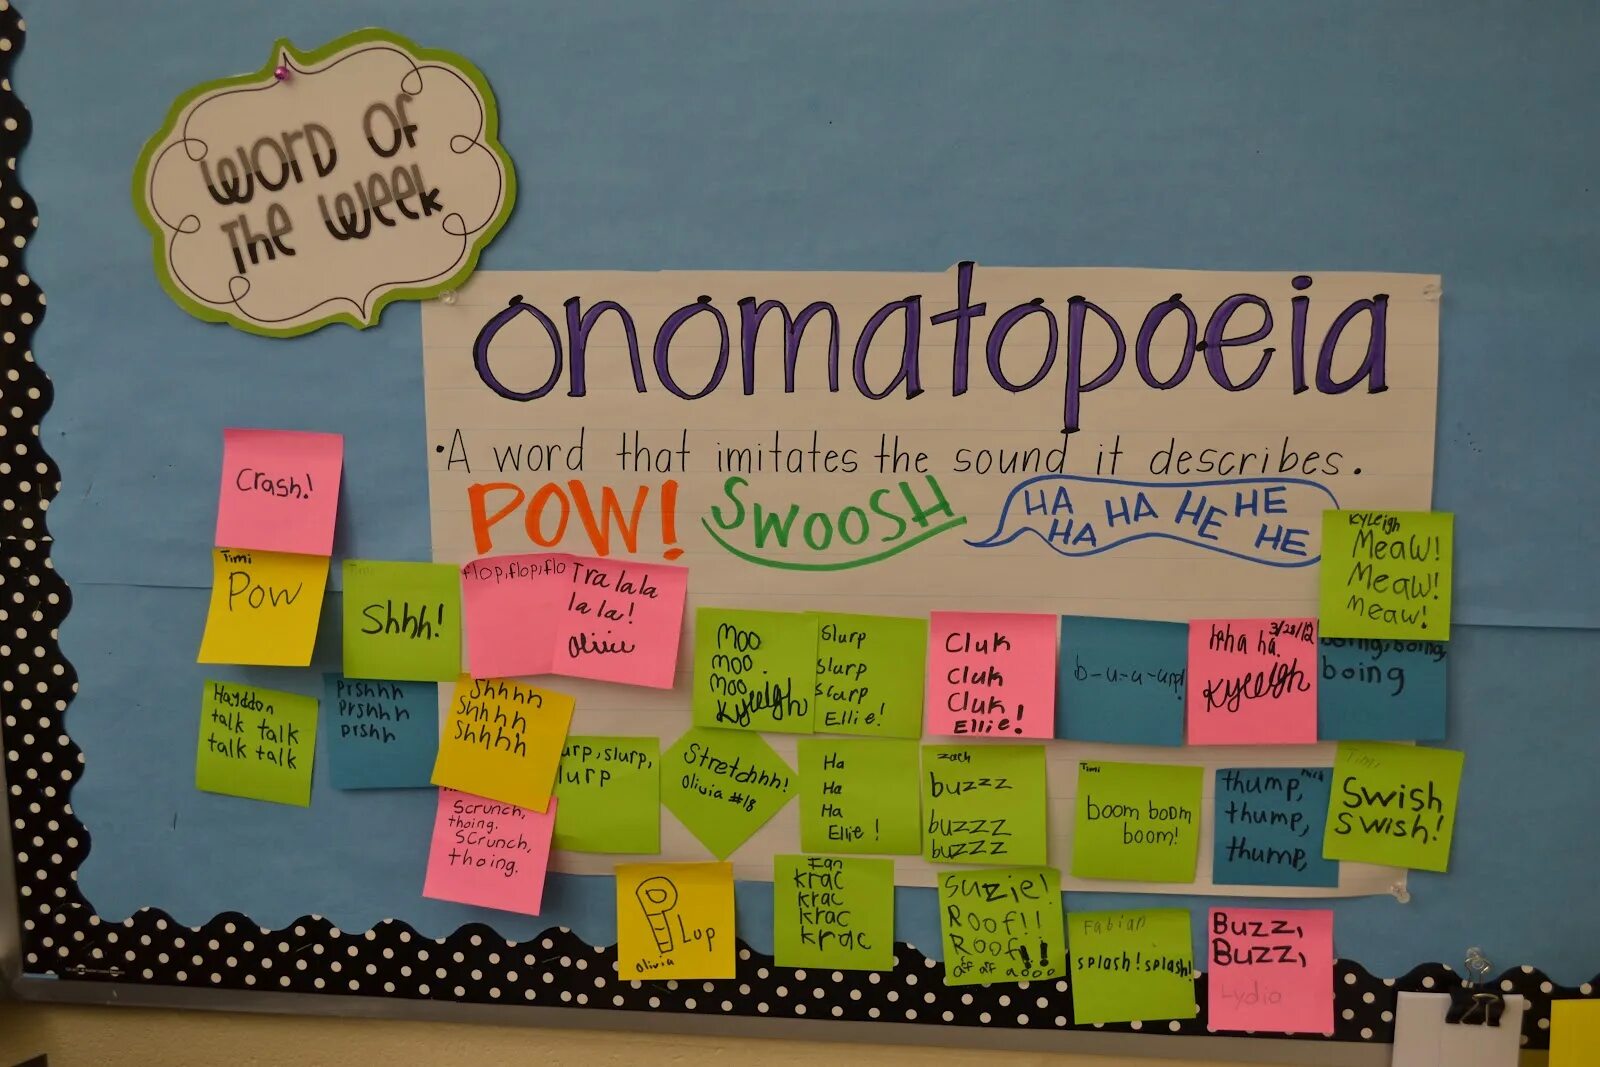 WORD OF
THE WEEK
onomatopoeia
•A word that imitates the sound it describes.
POW! SWOOSH
HA HA HE HE
HA HE
Crash!
Timi
Pow
Timi
Shhh!
flop,flop,flo
Tra la la
la la!
Olivia
Moo
moo
moo
Kyleigh
Slurp
slurp
slurp
Ellie!
Cluk
Cluk
Cluk
Ellie!
3/28/12
ha ha.
Kyleigh
Kyleigh
Meaw!
Meaw!
meaw!
boing, boing,
boing
Hayddon
talk talk
talk talk
Prshhh
Prshhh
prshh
Shhhh
Shhhh
Shhhh
urp, slurp,
lurp
Stretchhh!
Olivia #18
Ha
Ha
Ha
Ellie!
zach
buzzz
buzzz
buzzz
Timi
boom boom
boom!
thump,
thump,
thump,
Timi
Swish
Swish!
Scrunch,
thoing.
Scrunch,
thoing.
Lup
Olivia
Ian
krac
krac
krac
krac
Suzie!
Roof!!
Roof!!
Fabian
splash! splash!
Buzz,
Buzz,
Lydia